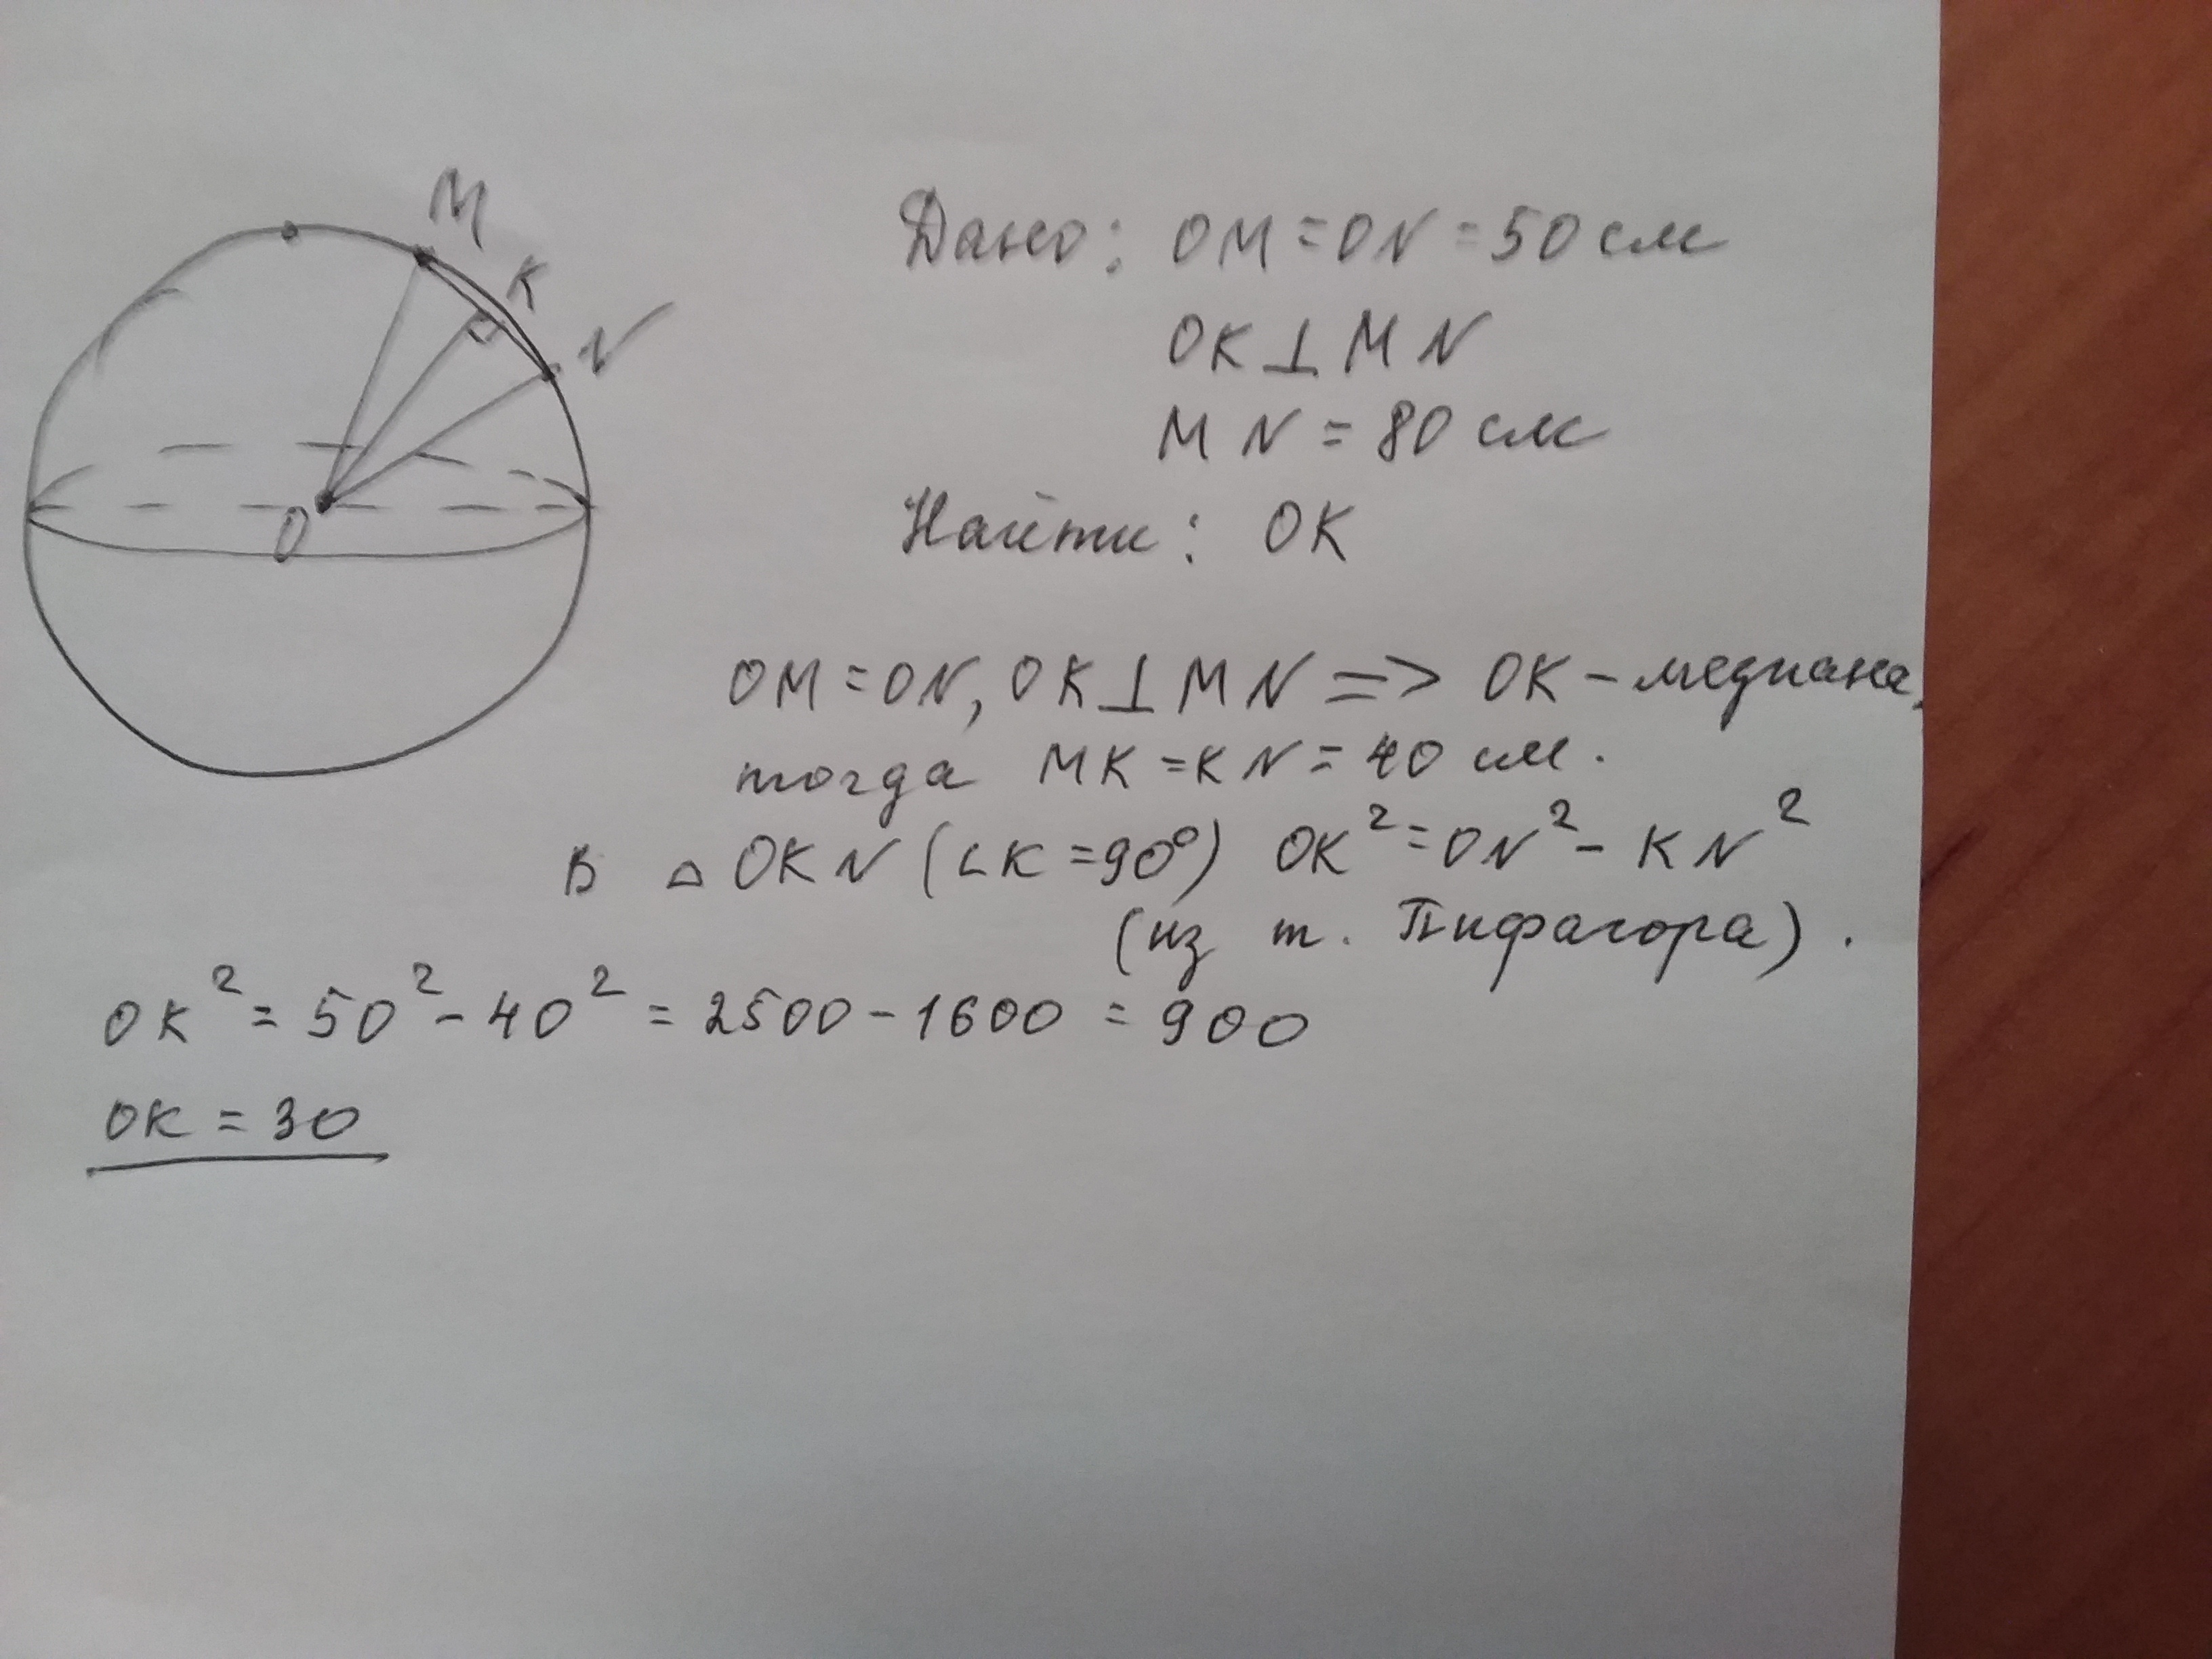 M
K
N
O
Дано: OM = ON = 50 см
OK ⊥ MN
MN = 80 см
Найти: OK
OM = ON, OK ⊥ MN => OK - медиана,
тогда MK = KN = 40 см.
В △ OKN (∠K = 90°) OK² = ON² - KN²
(из т. Пифагора).
OK² = 50² - 40² = 2500 - 1600 = 900
OK = 30